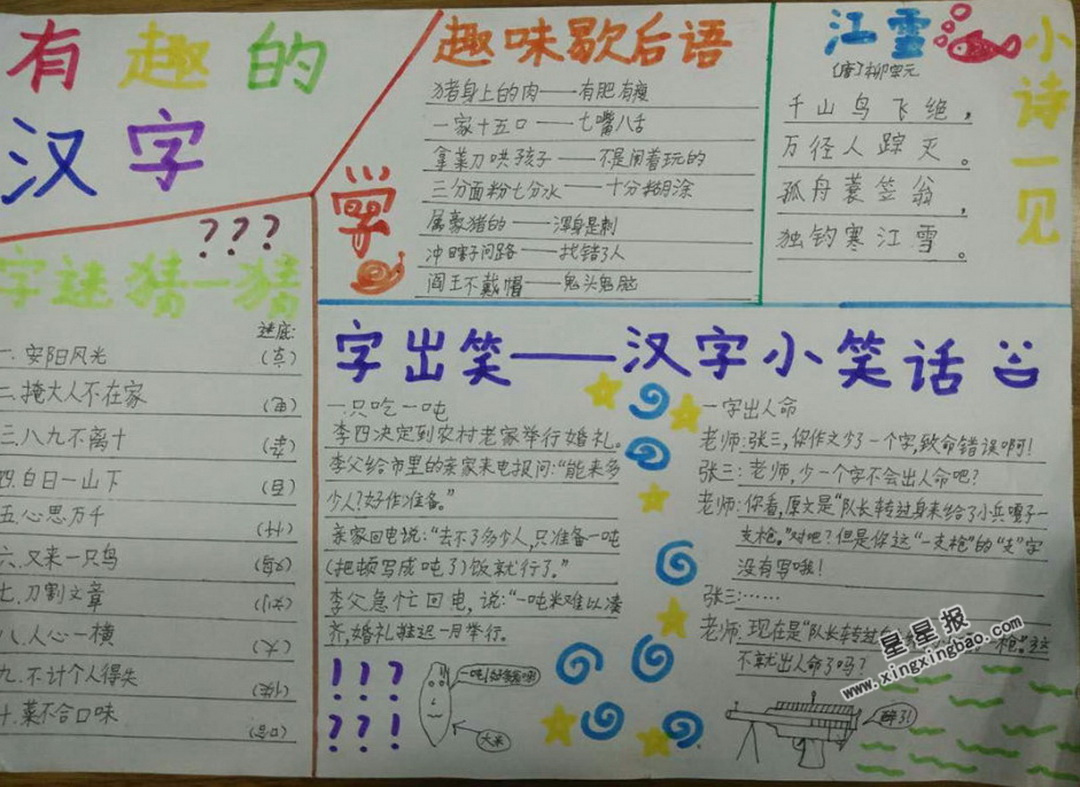 有趣的
汉字
???
字迷猜一猜
迷底:
一.安阳风光
二.掩大人不在家
三.八九不离十
四.白日一山下
五.心思万千
六.又来一只鸟
七.刀割文章
八.人心一横
九.不计个人得失
十.菜不合口味
趣味歇后语
学
猪身上的肉——有肥有瘦
一家十五口——七嘴八舌
拿菜刀哄孩子——不是闹着玩的
三分面粉七分水——十分糊涂
属豪猪的——浑身是刺
冲瞎子问路——找错了人
阎王不戴帽——鬼头鬼脑
江雪
〔唐〕柳宗元
千山鸟飞绝，
万径人踪灭。
孤舟蓑笠翁，
独钓寒江雪。
小诗一见
字出笑——汉字小笑话
一.只吃一吨
李四决定到农村老家举行婚礼。
李父给市里的亲家来电报问:“能来多
少人?好作准备。”
亲家回电说:“去不了多少人,只准备一吨
(把顿写成吨了)饭就行了。”
李父急忙回电,说:“一吨米难以凑
齐,婚礼推迟一月举行。
!!?
??!
大米
一字出人命
老师:张三,你作文少了一个字,致命错误啊!
张三:老师,少一个字不会出人命吧?
老师:你看,原文是“队长转过身来给了小兵嘎子一
支枪。”对吧?但是你这“一支枪”的“支”字
没有写哦!
张三:……
老师:现在是“队长转过
枪。”这
不就出人命了吗?
醉了!
星星报
www.xingxingbao.com